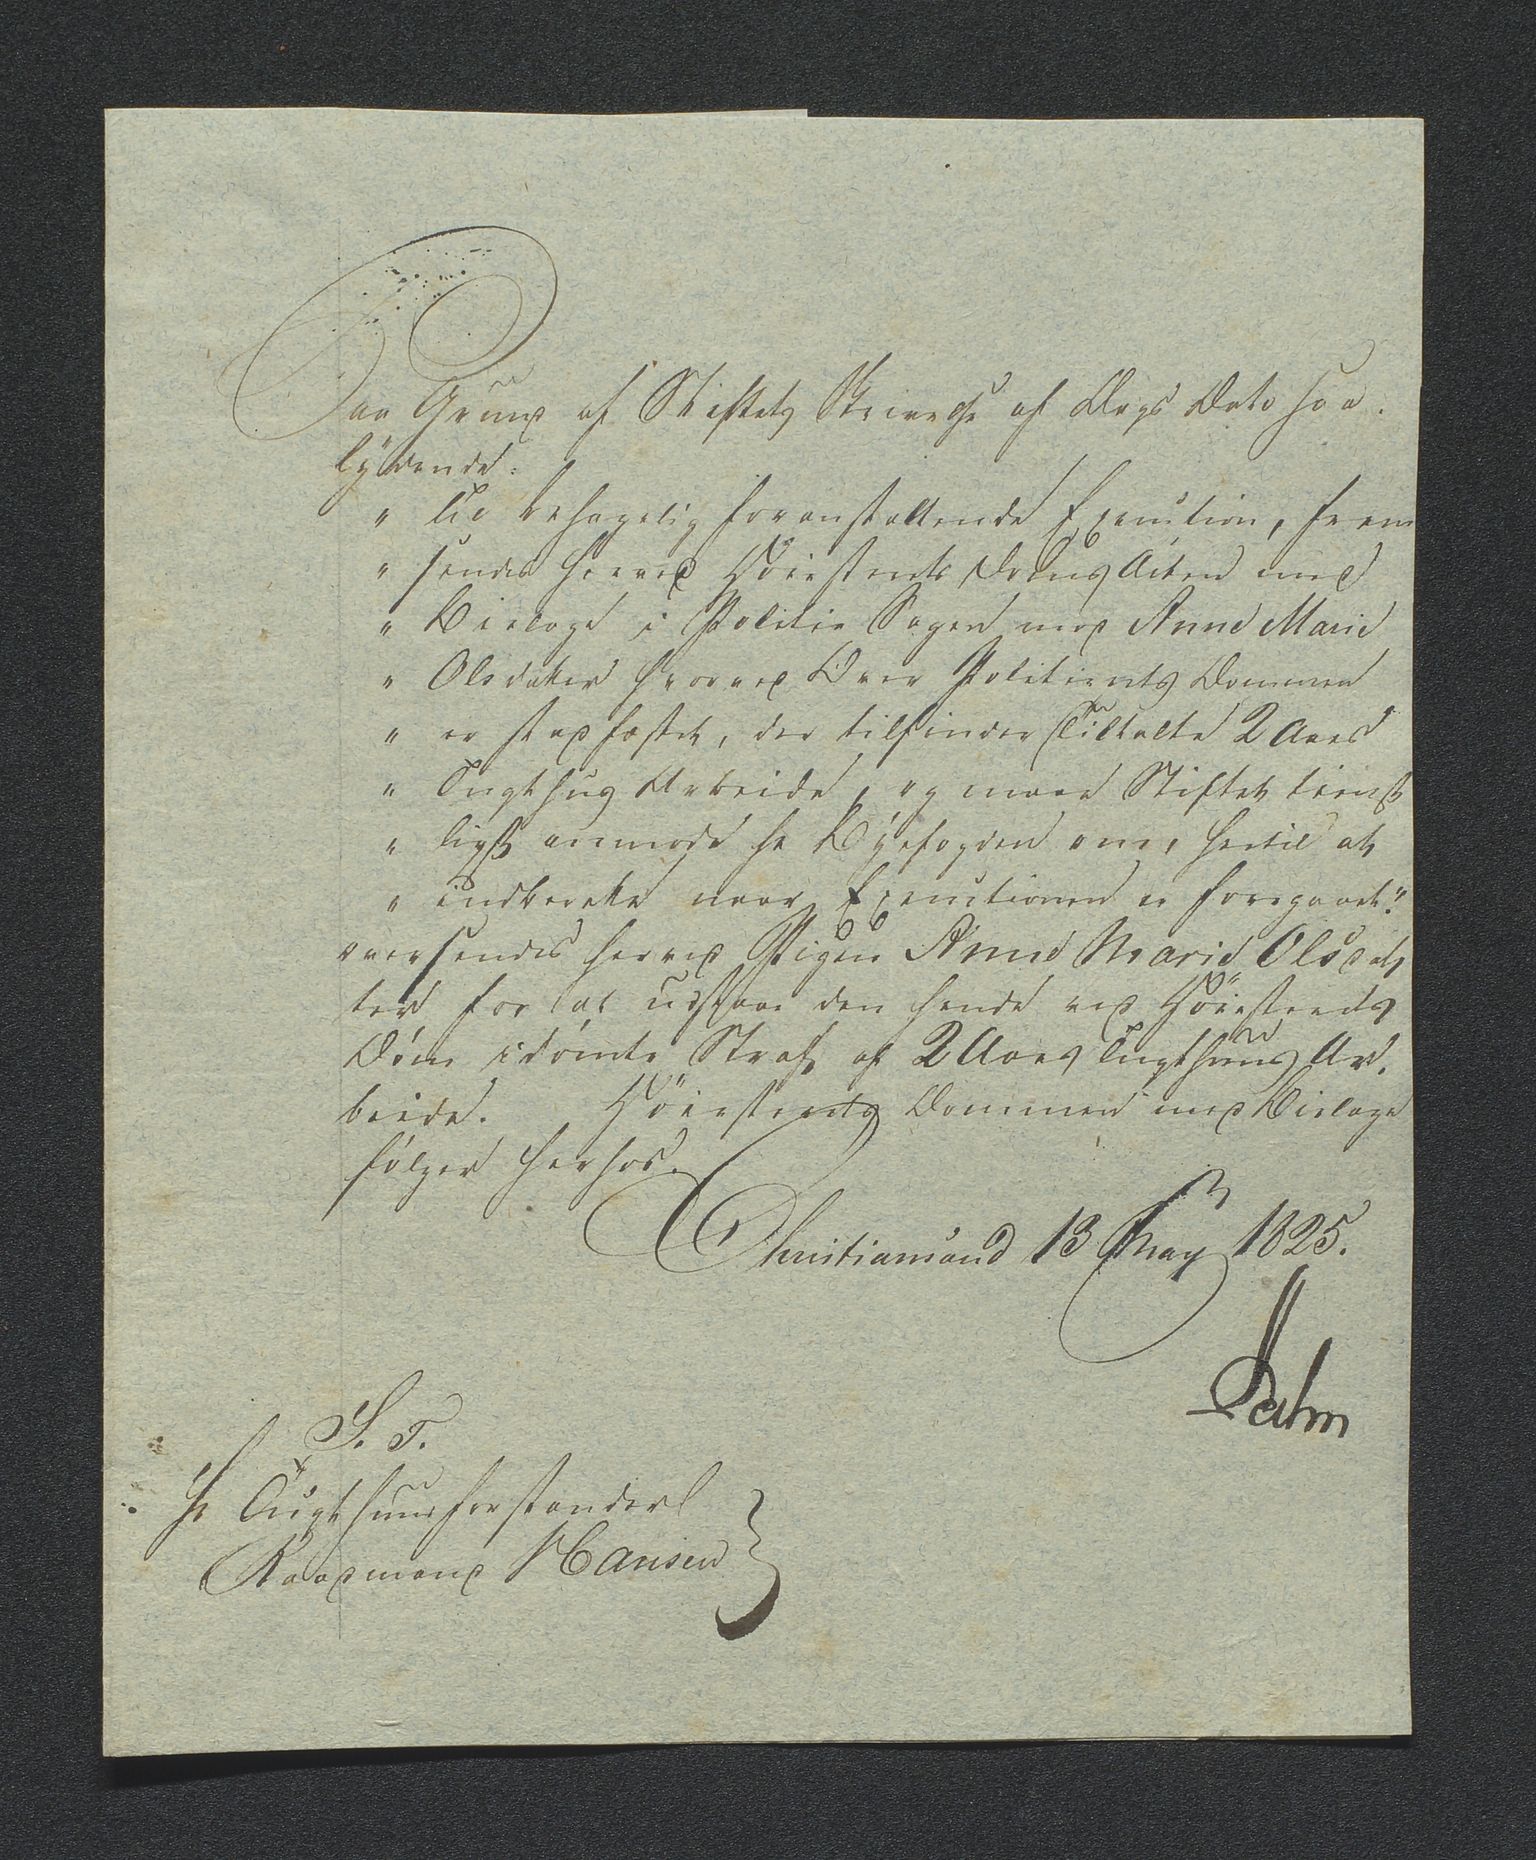 Paa Grund af Stiftets Skrivelse af Dags Dato saa
lydende:
" Til behagelig foranstaltende Execution, frem
" sendes herved Høiesterets Doms Acten med
" Bielage i Politie Sagen mod Anne Marie
" Olsdatter hvorved Over Politierets Dommen
" er stadfæstet, der tilfinder Tiltalte 2 Aars
" Tugthus Arbeide, og maae Stiftet tienst
" ligst anmode Hr Byefogden om, hertil at
" indberette naar Executionen er foregaaet."
oversendes herved Pigen Anne Marie Olsdat
ter for at udstaae den hende ved Høiesterets
Dom idømte Straf af 2 Aars Tugthuus Ar-
beide. Høiesterets Dommen med Bielage
følger herhos.
Christiansand 13 May 1825.
Dahm
S. T.
Hr Tugthuusforstander
Raadmand Hansen